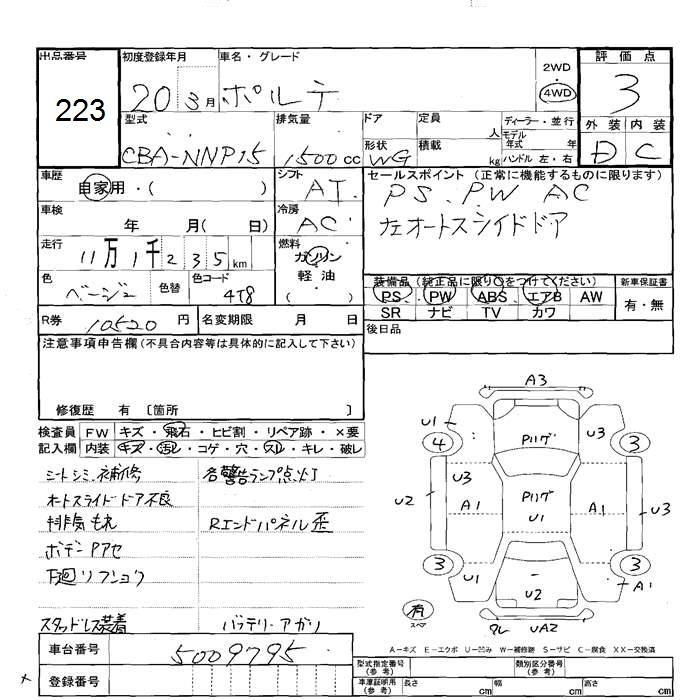 出品番号 初度登録年月 車名・グレード 評価点
223 20 3月 ポルテ 2WD 4WD 3
型式 排気量 ドア 定員 人 ディーラー・並行 外装 内装
CBA-NNP15 1500cc 形状 WG 積載 kg モデル年式 年 ハンドル 左・右 D C
車歴 自家用・( ) シフト AT セールスポイント (正常に機能するものに限ります)
PS. PW AC
車検 年 月( 日) 冷房 AC 左オートスライドドア
走行 11万1千235km 燃料 ガソリン 軽油 ( )
色 ベージュ 色替 色コード 4T8
装備品 (純正品に限り○をつけてください) 新車保証書
PS PW ABS エアB AW 有・無
SR ナビ TV カワ
R券 10520円 名変期限 月 日 後日品
注意事項申告欄(不具合内容等は具体的に記入して下さい)
修復歴 有 〔箇所 〕
検査員 FW キズ・飛石・ヒビ割・リペア跡・×要
記入欄 内装 キズ・汚レ・コゲ・穴・スレ・キレ・破レ
シートシミ、補修 各警告ランプ点灯
オートスライドドア不良
排気もれ Rエンドパネル歪
ボデーヤケアセ
下廻リフショク
スタッドレス装着 バッテリーアガリ
A3
U1 Pリグ U3
4 3
U2 U3 A1 Pリグ U1 A1 U3
3 3
U1 U2 A1
有 スペア UA2
A-キズ E-エクボ U-凹み W-補修跡 S-サビ C-腐食 XX-交換済
車台番号 5009795
登録番号
型式指定番号(参考) 類別区分番号(参考)
車庫証明用(参考) 長さ cm 幅 cm 高さ cm